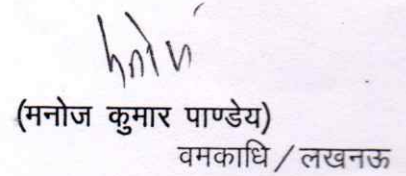 (मनोज कुमार पाण्डेय)
वमकाधि / लखनऊ